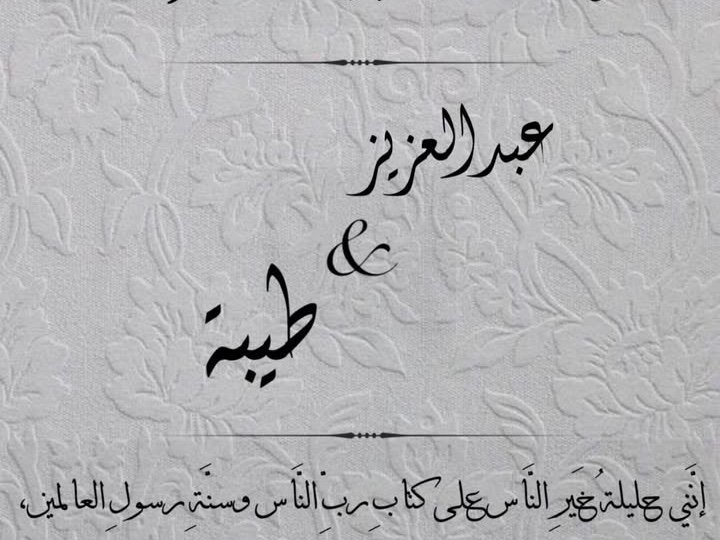 عبدالعزيز
&
طيبة
إنَّني حليلةُ خَيرِ النَّاس على كتابِ ربِّ النَّاس وسنَّةِ رسولِ العالمين،